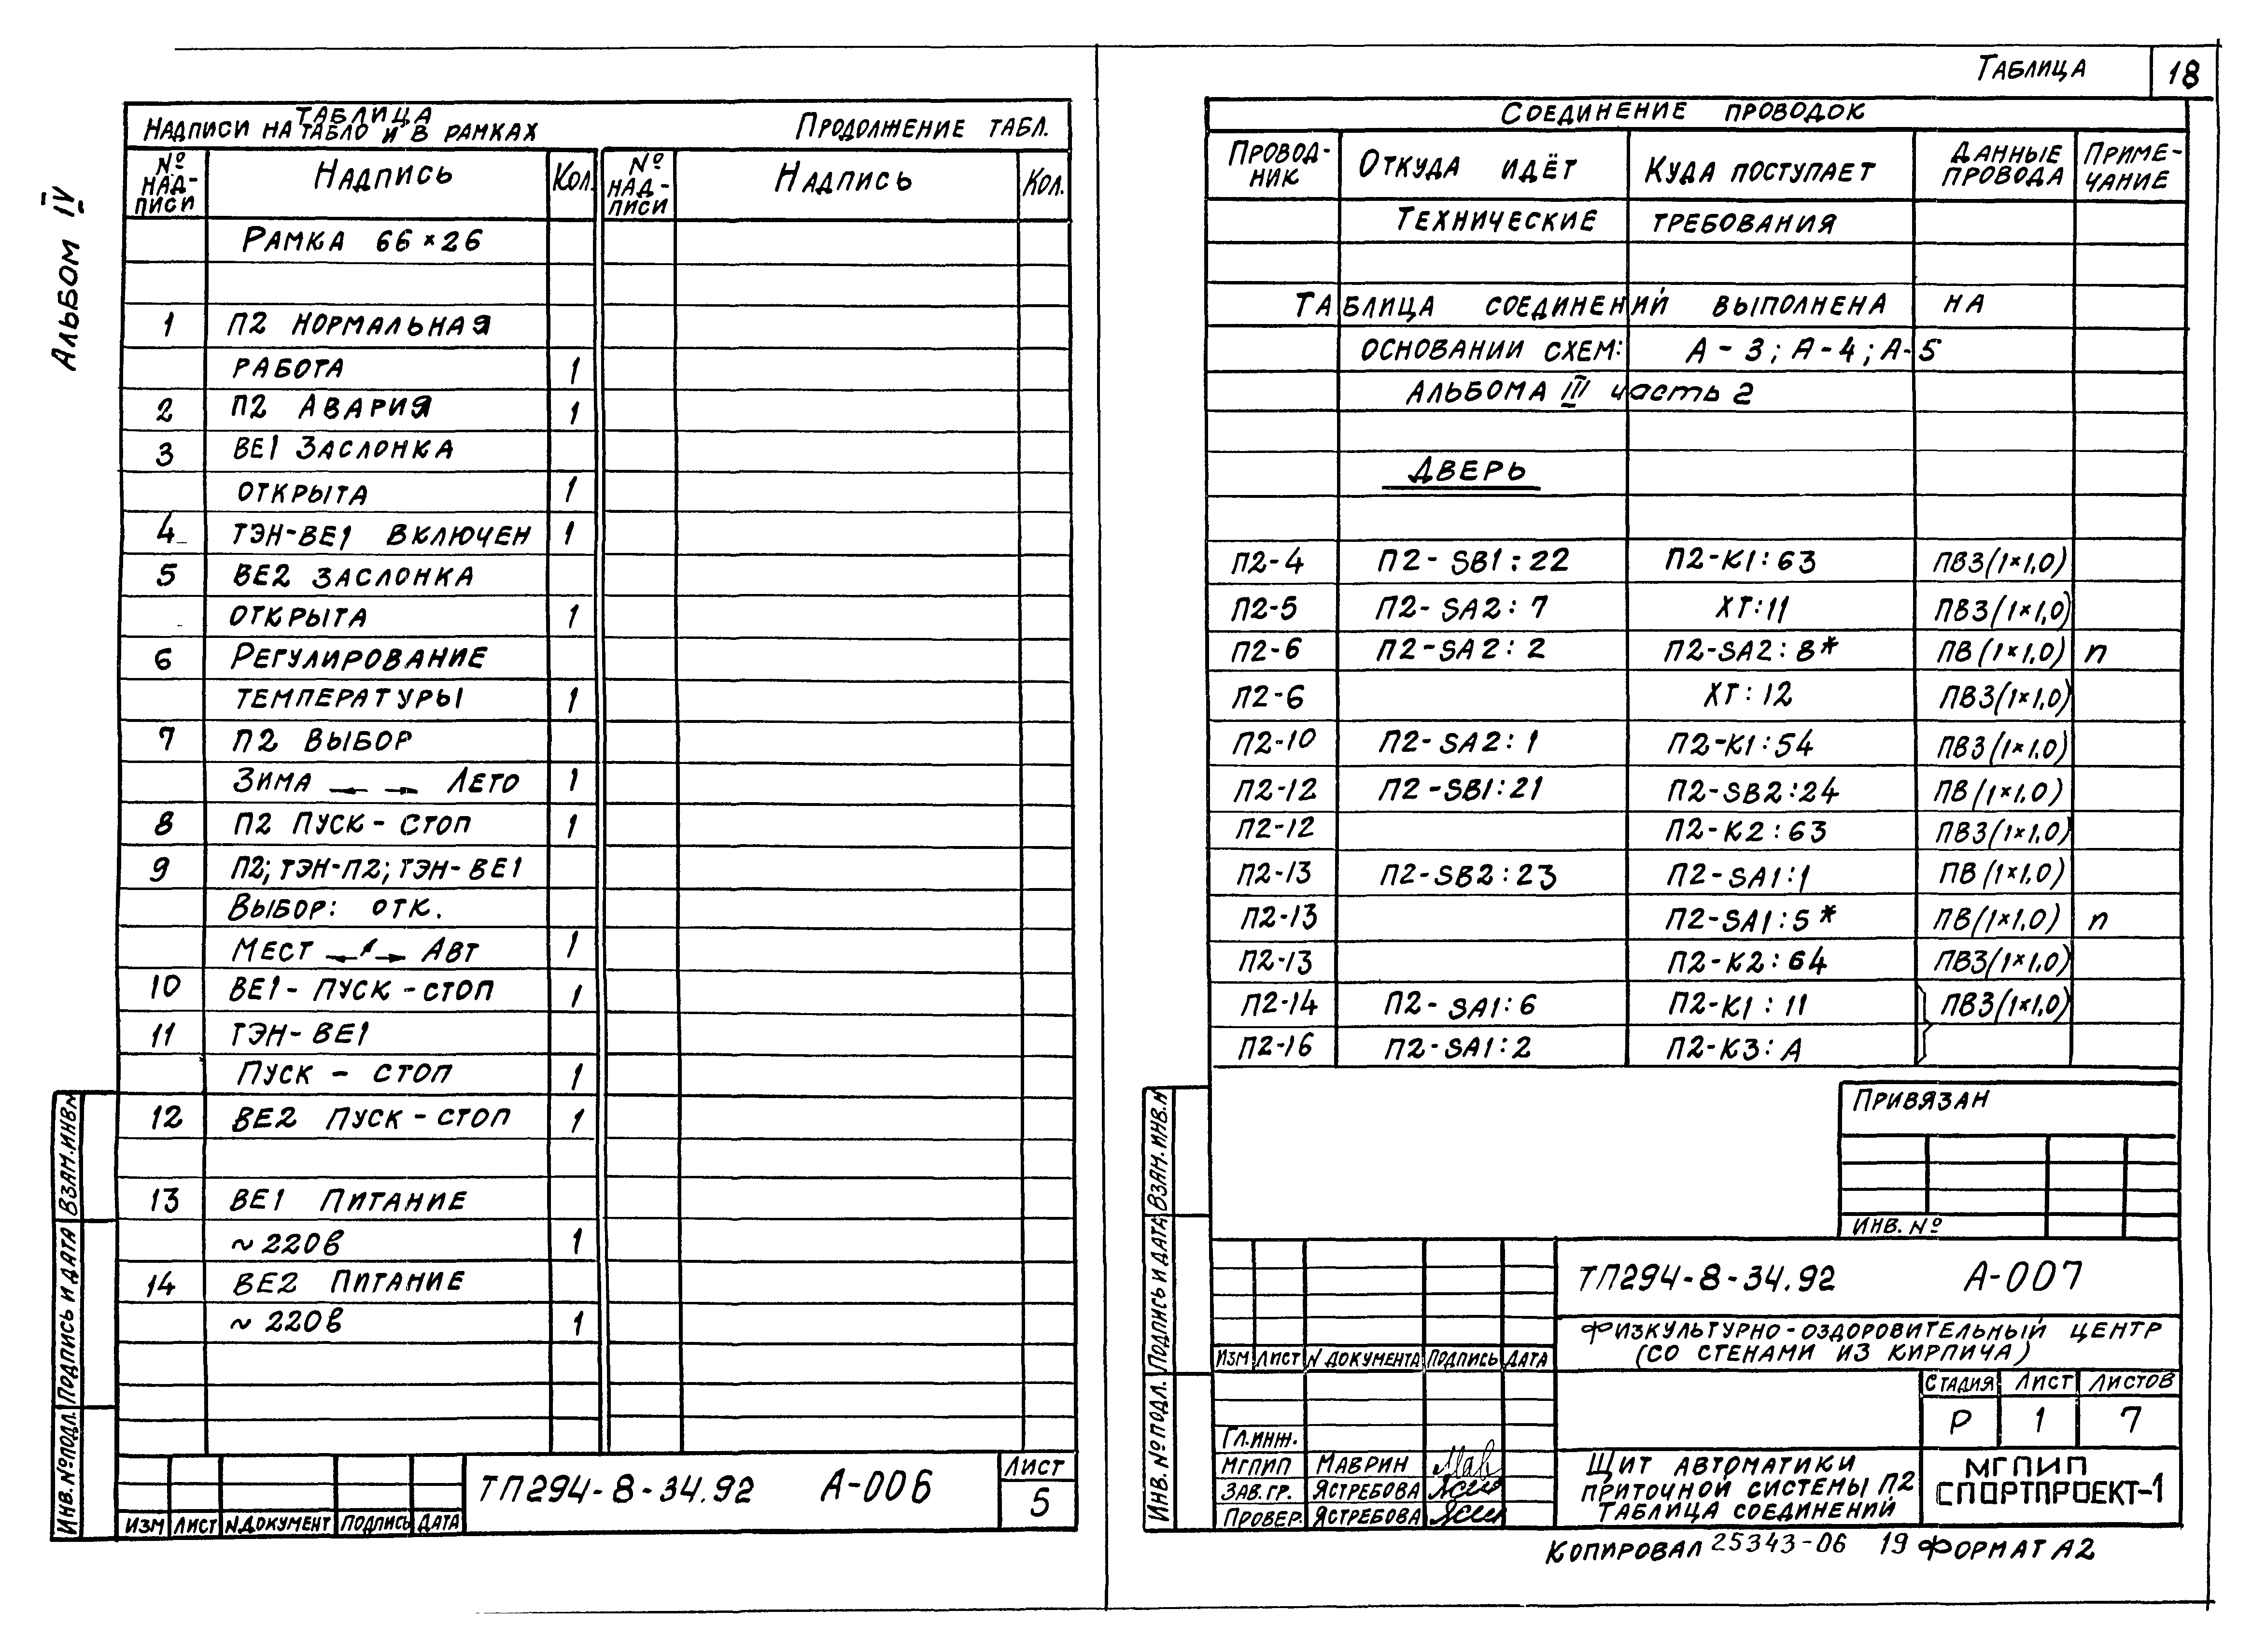 Альбом IV
Таблица
Надписи на табло и в рамках Продолжение табл.
№ надписи Надпись Кол. № надписи Надпись Кол.
Рамка 66×26
1 П2 нормальная
работа 1
2 П2 авария 1
3 ВЕ1 заслонка
открыта 1
4 ТЭН-ВЕ1 включен 1
5 ВЕ2 заслонка
открыта 1
6 Регулирование
температуры 1
7 П2 Выбор
Зима ← → Лето 1
8 П2 Пуск - стоп 1
9 П2; ТЭН-П2; ТЭН-ВЕ1
Выбор: отк.
Мест ← ↑ → Авт 1
10 ВЕ1 - Пуск - стоп 1
11 ТЭН-ВЕ1
Пуск - стоп 1
12 ВЕ2 Пуск - стоп 1
13 ВЕ1 Питание
~220в 1
14 ВЕ2 Питание
~220в 1
Инв. № подл. Подпись и дата Взам. инв. №
Изм Лист N документ Подпись Дата
ТП294-8-34.92 А-006
Лист
5
Таблица 18
Соединение проводок
Провод-
ник Откуда идёт Куда поступает Данные
провода Приме-
чание
Технические требования
Таблица соединений выполнена на
основании схем: А-3; А-4; А-5
альбома III часть 2
Дверь
П2-4 П2-SB1:22 П2-К1:63 ПВ3(1×1,0)
П2-5 П2-SA2:7 ХТ:11 ПВ3(1×1,0)
П2-6 П2-SA2:2 П2-SA2:8* ПВ(1×1,0) п
П2-6 ХТ:12 ПВ3(1×1,0)
П2-10 П2-SA2:1 П2-К1:54 ПВ3(1×1,0)
П2-12 П2-SB1:21 П2-SB2:24 ПВ(1×1,0)
П2-12 П2-К2:63 ПВ3(1×1,0)
П2-13 П2-SB2:23 П2-SA1:1 ПВ(1×1,0)
П2-13 П2-SA1:5* ПВ(1×1,0) п
П2-13 П2-К2:64 ПВ3(1×1,0)
П2-14 П2-SA1:6 П2-К1:11 ПВ3(1×1,0)
П2-16 П2-SA1:2 П2-К3:А
Привязан
Инв. №
Инв. № подл. Подпись и дата Взам. инв. №
ТП294-8-34.92 А-007
Физкультурно-оздоровительный центр
(со стенами из кирпича)
Изм Лист N документа Подпись Дата
Стадия Лист Листов
Р 1 7
Гл.инж.
МГПИП Маврин
Зав.гр. Ястребова
Провер. Ястребова
Щит автоматики
приточной системы П2
Таблица соединений
МГПИП
СПОРТПРОЕКТ-1
Копировал 25343-06 19 Формат А2